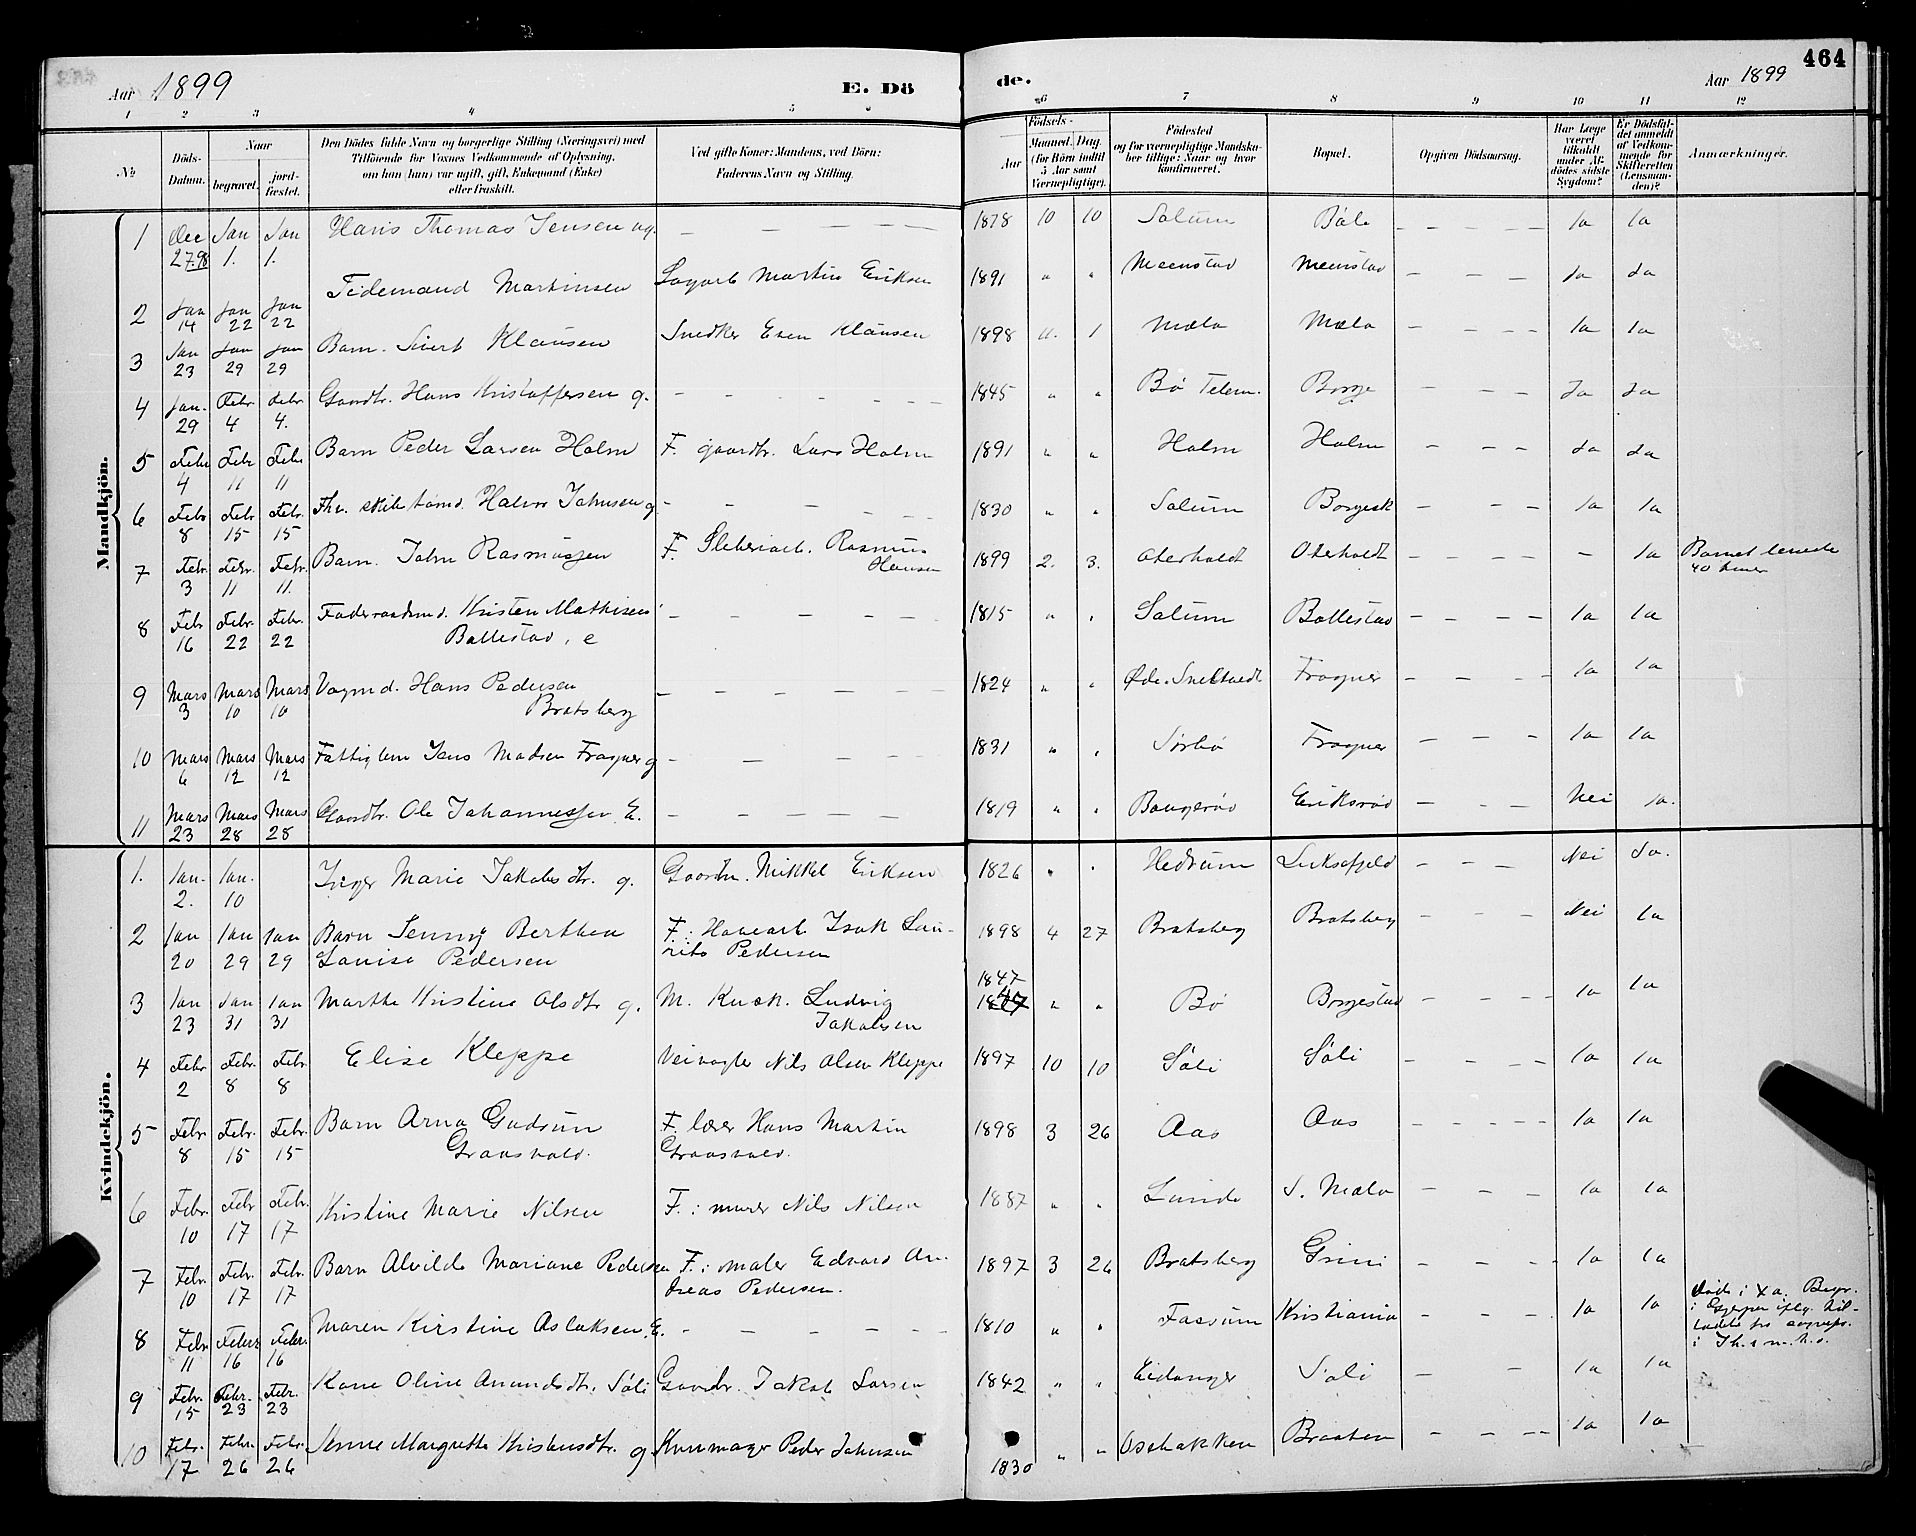 464
Aar 1899 E. Dö de. Aar 1899
1 2 3 4 5 6 7 8 9 10 11 12
№ Döds-Datum. Naar begravet. jord-fæstet. Den Dödes fulde Navn og borgerlige Stilling (Næringsvei) med Tilföiende for Voxnes Vedkommende af Oplysning, om han (hun) var ugift, gift, Enkemand (Enke) eller fraskilt. Ved gifte Koner: Mandens, ved Börn: Faderens Navn og Stilling. Födsels- Aar Maaned. Dag. (for Börn indtil 5 Aar samt Værnepligtige). Födested og for værnepligtige Mandskaber tillige: Naar og hvor konfirmeret. Bopæl. Opgiven Dödsaarsag. Har Læge været tilkaldt under Afdödes sidste Sygdom? Er Dödsfaldet anmeldt af Vedkommende for Skifteretten (Lensmanden)? Anmærkninger.
Mandkjön.
1 Dec 27.98 Jan 1. Jan 1. Hans Thomas Jensen ug. — — — — 1878 10 10 Solum Böle — — — — Ja Ja
2 Jan 14 Jan 22 Jan 22 Tidemand Martinsen Sagarb Martin Eriksen 1891 " " Meenstad Meenstad — — — Ja Ja
3 Jan 23 Jan 29 Jan 29 Barn. Sivert Klausen Snedker Even Klausen 1898 11. 1 Mæla Mæla — — — Ja Ja
4 Jan. 29 Febr 4 Febr 4. Gaardbr. Hans Kristoffersen g. — — — — 1845 " " Bö Telem. Borge — — — Ja Ja
5 Febr 4 Febr 11 Febr 11 Barn Peder Larsen Holm F. gaardbr. Lars Holm 1891 " " Holm Holm — — — Ja Ja
6 Febr 8 Febr 15 Febr. 15 Fhv. skibstømd. Halvor Johnsen g — — — — 1830 " " Solum — — — Ja Ja
7 Febr. 3 Febr. 11 Febr. 11. Barn. John Rasmussen F. Sliberiarb. Rasmus Hansen 1899 2. 3. Oterholdt Oterholdt — — — — — Ja Barnet levede 40 timer
8 Febr 16 Febr. 22 Febr. 22 Föderaadsmd. Kristen Mathisen Bøllestad, e — — — — 1815 " " Solum Bøllestad — — — — Ja Ja
9 Mars 3 Mars 10 Mars 10 Vognmd. Hans Pedersen Bratsberg — — — — 1824 " " Fragner — — — Ja Ja
10 Mars 6 Mars 12 Mars 12 Fattiglem Jens Madsen Fragner g — — — — 1831 " " Sörbö Fragner — — — Ja Ja
11 Mars 23 Mars 28 Mars 28 Gaardbr. Ole Johannessen E. — — — — 1819 " " Baugeröd Eriksröd — — — Nei Ja.
Kvindekjön.
1. Jan. 2. Jan. 10 Inger Marie Jakobsdtr. g. Gaardm. Mikkel Eriksen 1826 " " Hedrum Luksefjeld — — — Nei Ja.
2 Jan 20 Jan 29 Jan 29 Barn Jenny Berthea Louise Pedersen F.: Havearb Isak Lauritz Pedersen 1898 4 27 Bratsberg Bratsberg — — — Nei Ja
3 Jan 23 Jan 31 Jan 31 Marthe Kristine Olsdtr g. M. Kusk. Ludvig Jakobsen 1847 " " Bö Borgestad — — — Ja Ja
4 Febr 2 Febr. 8 Febr 8 Elise Kleppe Veivogter Nils Olsen Kleppe 1897 10 10 Söli Söli — — — Ja Ja
5 Febr. 8 Febr. 15 Febr. 15 Barn Arna Gudrun Graasvold. F. lærer Hans Martin Graasvold. 1898 3 26 Aas Aas — — — — Ja Ja
6 Febr. 10 Febr 17 Febr. 17 Kristine Marie Nilsen F.: murer Nils Nilsen 1887 " " Lunde S. Mæla — — — Ja Ja
7 Febr. 10 Febr. 17 Febr. 17 Barn Alvilde Mariane Pedersen F.: maler Edvard Andreas Pedersen. 1897 3 26 Bratsberg Grini — — — Ja Ja
8 Febr. 11 Febr 16 Febr. 16 Maren Kirstine Aslaksen, E. — — — — 1810 " " Fossum Kristiania — — — Ja Ja Död i Xa. Begr. i Gjerpen iflg. tilladelse fra sognepr. i
9 Febr. 15 Febr. 23 Febr. 23 Kone Oline Amundsdtr. Söli Gaardbr. Jakob Larsen 1842 " " Eidanger Söli — — Ja Ja
10 Febr. 17 Febr. 26 Febr. 26 Margrethe Kristensdtr. g Peder Johnsen 1830 " " Osebakken Braaten — — — Ja Ja